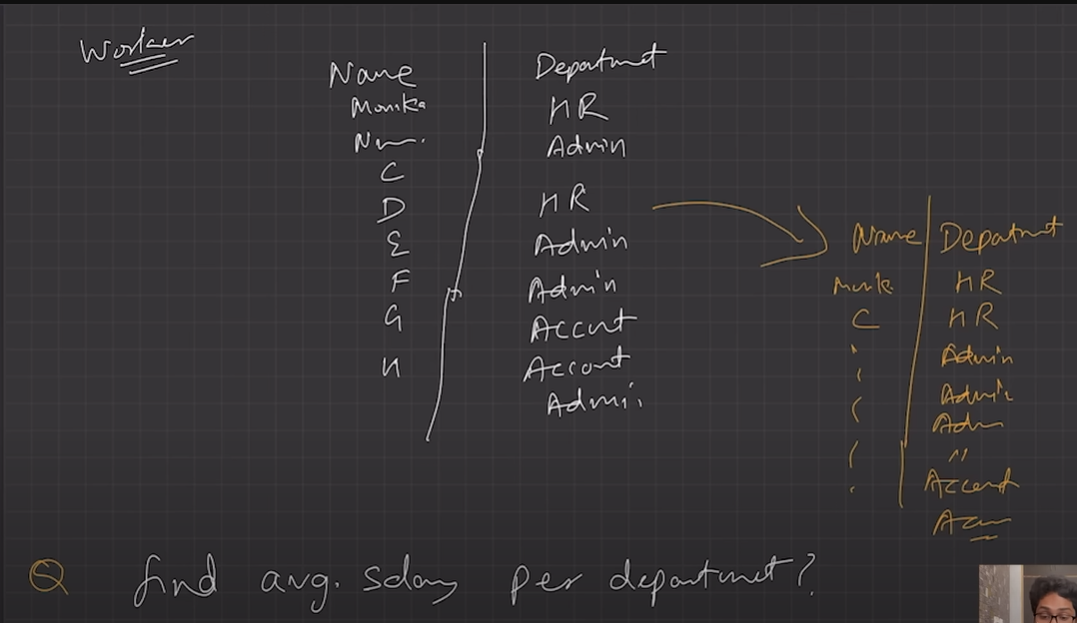 Worker
Name Department
Monika HR
Admin
C
D HR
E Admin
F Admin
G Account
H Account
Admi
Name Department
HR
C HR
Admin
Admin
Adm
"
Account
Q find avg. salary per department?